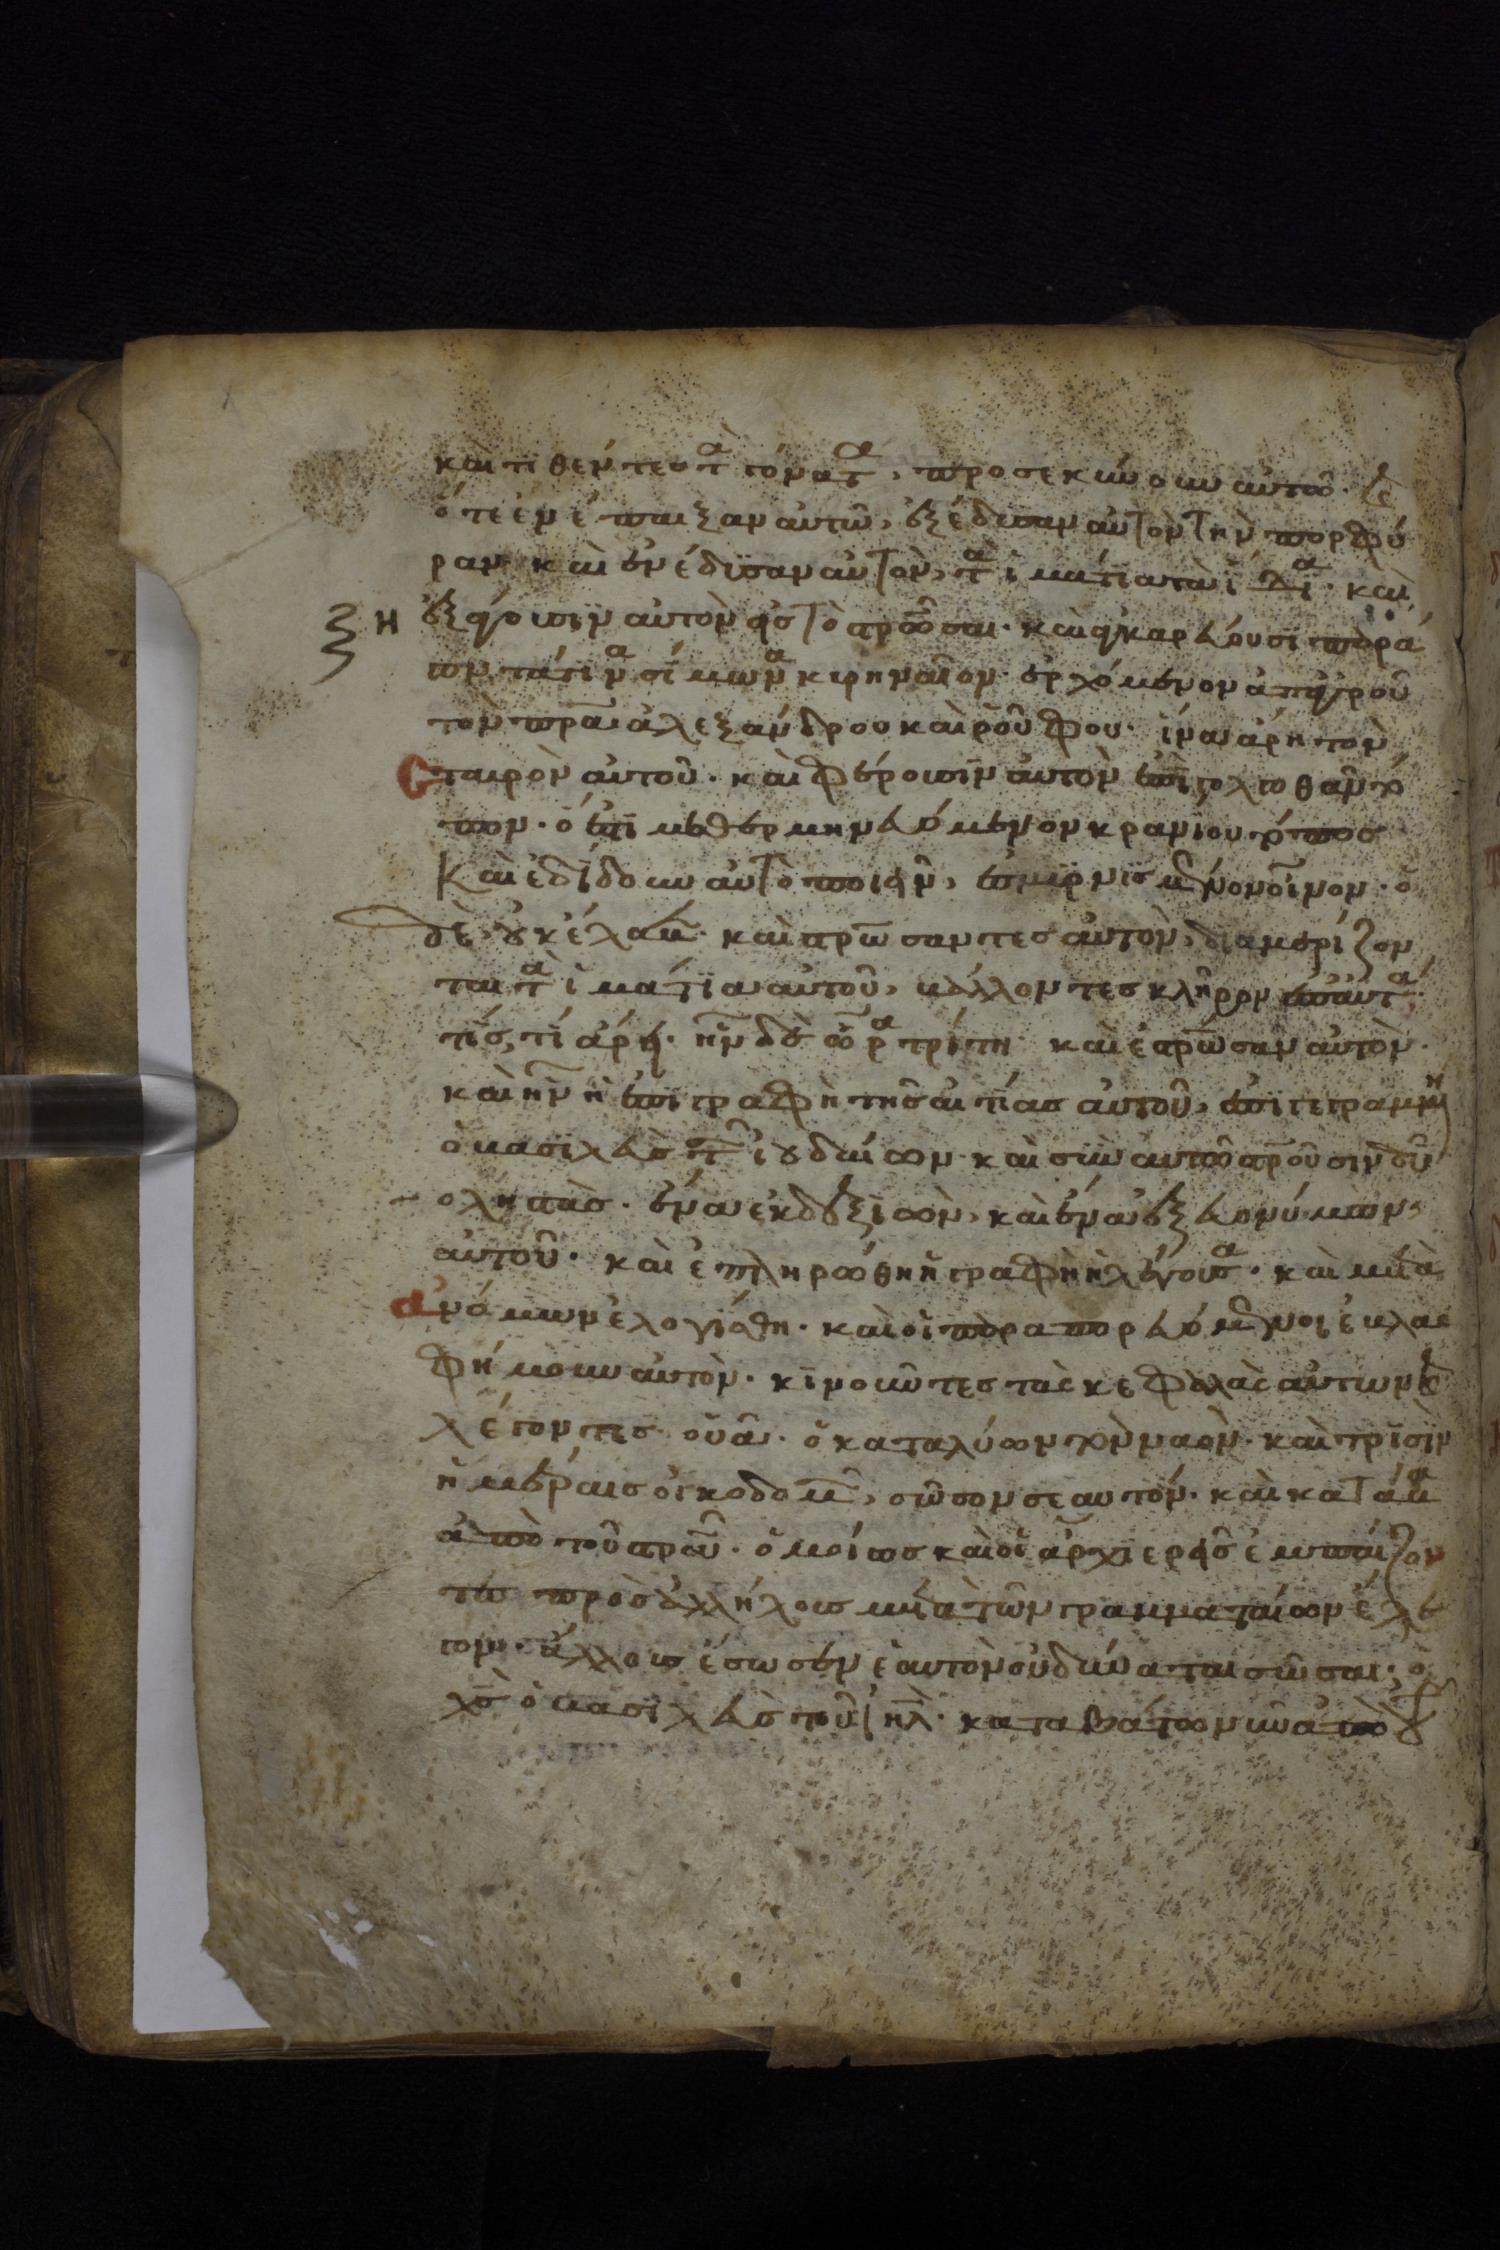 καὶ τιθέντες τὰ γόνατα, προσεκύνουν αὐτῶ· καὶ
ὅτε ἐνέπαιξαν αὐτῶ, ἐξέδισαν αὐτὸν τὴν πορφύ
ραν καὶ ἐνέδϊσαν αὐτὸν, τὰ ἱμάτια τὰ ἴδϊα· καὶ
ξη ἐξάγουσϊν αὐτὸν εἰς τὸ σρῶσαι· καὶ ἀγκαρεύουσι παρά
γων τάτινα σίμωνα κιρηναῖον· ἐρχόμενον ἀπ' ἀγροῦ
τὸν πρα αλεξάνδρου καὶ ῥούφου· ἵνα ἄρη τὸν
σταυρὸν αὐτοῦ· καὶ φέρουσϊν αὐτὸν ἐπὶ γολγοθᾶν τό
πον· ὅ ἐστϊ μεθερμηνευόμενον κρανίου τόπος
Καὶ ἐδίδουν αὐτὸ ποιεῖν, ἐσμϊρνισμένον οἶνον· ὁ
δὲ οὐκ έλαβε· καὶ σρώσαντες αὐτὸν, διαμερίζον
ται τὰ ἱμάτϊα αὐτοῦ, βάλλοντες κλῆρον ἐπ' αὐτά·
τίς τί άρη· ἦν δὲ ὥρα τρίτη καὶ ἐσρωσαν αὐτὸν·
καὶ ἦν ἡ ἐπιγραφὴ τῆς αἰτίας αὐτοῦ, ἐπιγεγραμμένη
ὁ βασϊλεὺς τῶν ἰουδαίων· καὶ σὺν αὐτῶ σροῦσιν δύο
ο ληστὰς· ἕνα ἐκ δεξιῶν, καὶ ένα ἐξ εὐονύμων
αὐτοῦ· καὶ ἐπληρώθη ἡ γραφὴ ἡ λέγουσα· καὶ μετὰ
ἀνόμων ἐλογίσθη· καὶ οἱ παραπορευόμενοι ἐβλασ
φήμουν αὐτὸν· κϊνοῦντες τὰς κεφαλὰς αὐτῶν καὶ
λέγοντες· οὐᾶ· ὁ καταλύων τὸν ναὸν· καὶ τρϊσὶν
ἡμέραις οἰκοδομῶν, σῶσον σεαυτόν· καὶ κατάβα
ἀπὸ τοῦ σρου· ὁμοίως καὶ οἱ ἀρχϊερεῖς ἐμπαίζον
τες πρὸς ἀλλήλους μετὰ τῶν γραμματαίων ἔλε
γον· ἄλλους έσωσεν ἑαυτὸν οὐ δύναται σῶσαι· ὁ
χς ὁ βασϊλεὺς τοῦ ιηλ· καταβάτω νῦν ἀπὸ τοῦ